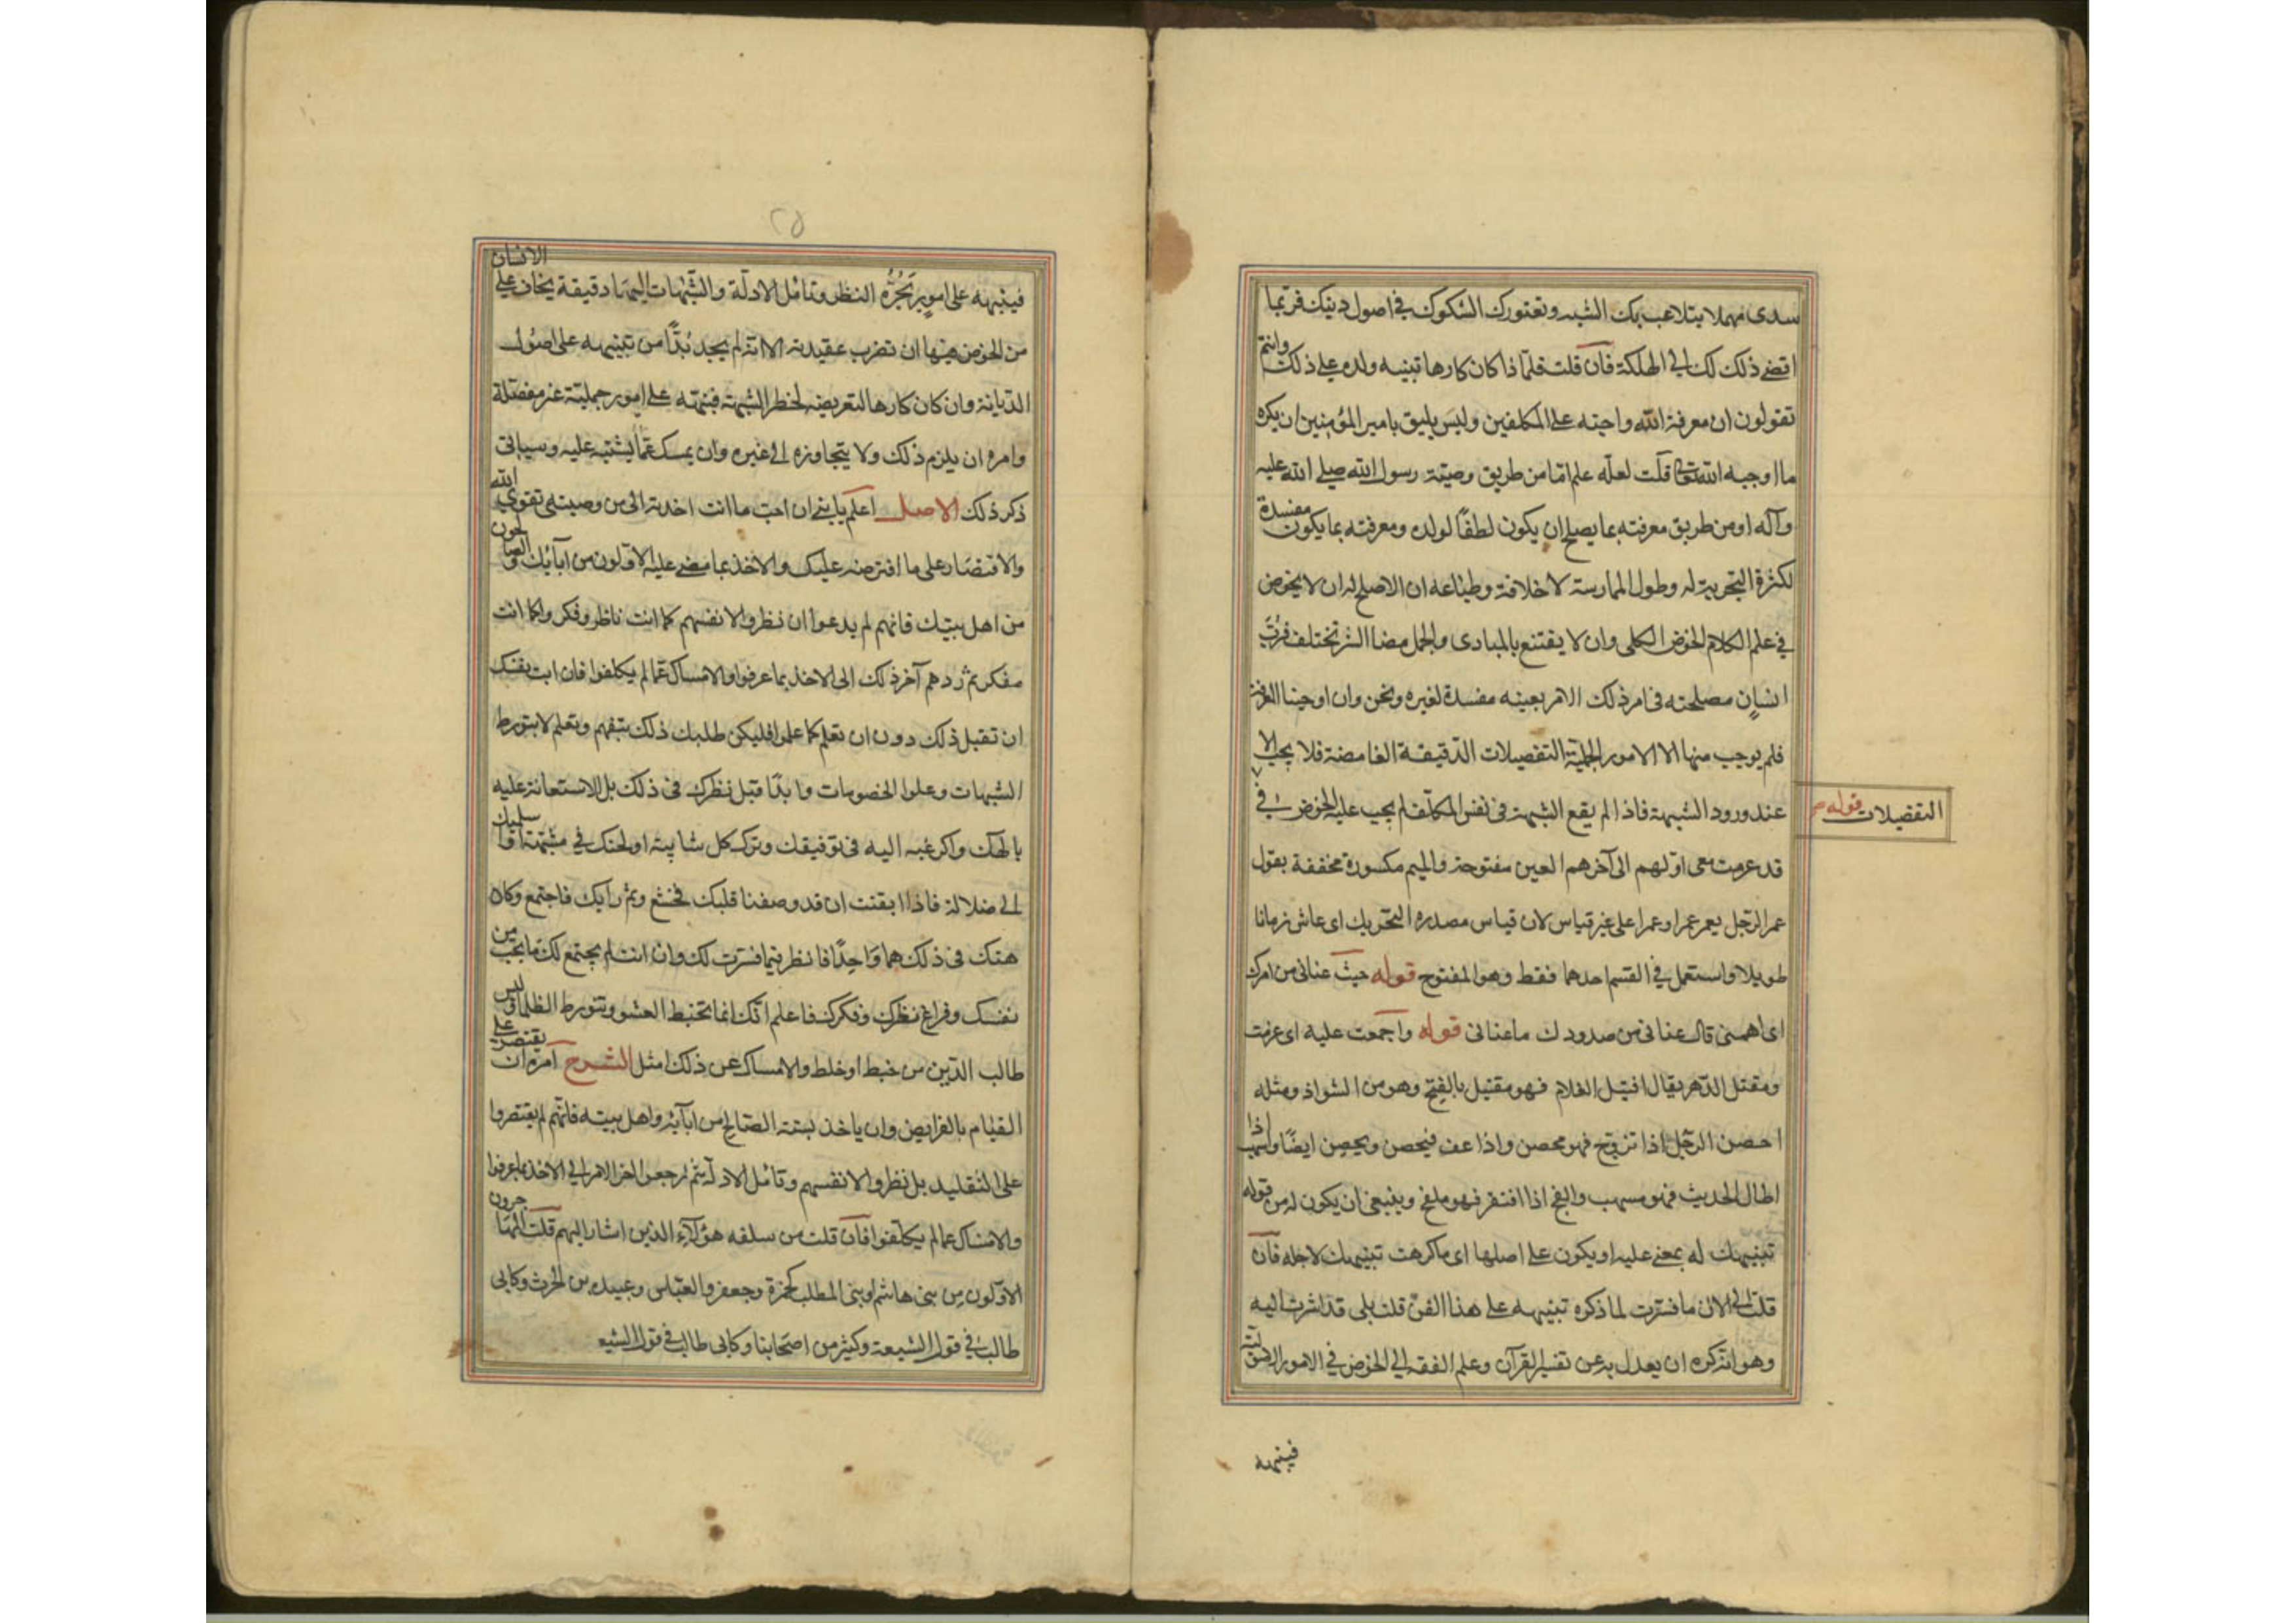 سدى مهملا يتلاعب بك الشبه وتعتورك الشكوك في اصول دينك فربما
افضى ذلك بك الى الهلكة فان قلت فلما ذا كان كارها تنبيه ولده على ذلك وانتم
تقولون ان معرفة الله واجبة على المكلفين وليس يليق بامير المؤمنين ان يكره
ما اوجبه الله تعالى قلت لعله علم اما من طريق وصية رسول الله صلى الله عليه
وآله او من طريق معرفته بما يصلح ان يكون لطفًا لولده ومعرفته بما يكون مفسدة
لكثرة التجربة له وطول الممارسة لاخلاقه وطباعه ان الاصلح له ان لا يخوض
في علم الكلام الخوض الكلى وان لا يقتنع بالمبادى والجمل مضا البشر تختلف فرُبّ
انسانٍ مصلحته فى امر ذلك الامر بعينه مفسدة لغيره ونحن وان اوجبنا المعرفة
فلم يوجب منها الا الامور الجملية التفصيلات الدقيقة الغامضة فلا يجب الا
التفصيلات قوله
عند ورود الشبهة فاذا لم يقع الشبهة فى نفس المكلف لم يجب عليه الخوض في
قد عرمت معى اولهم الى آخرهم العين مفتوحة والميم مكسورة مخففة يقول
عمر الرجل يعمر عمرا وعمرا على غير قياس لان قياس مصدره التحريك اى عاش زمانا
طويلا واستعمل في القسم احدهما فقط وهو المفتوح قوله حيث عنانى من امرك
اى اهمنى قال عنانى من صدودك ما عنانى قوله واجمعت عليه اى عزمت
ومقتبل الدهر يقال اقتبل الغلام فهو مقتبل بالفتح وهو من الشواذ ومثله
احصن الرجل اذا تزوج فهو محصن واذا عف فيحصن ويحصن ايضًا واسهب اذا
اطال الحديث فهو مسهب والفج اذا افتقر فهو ملفج وينبغى ان يكون له من قوله
تنبيهك له بمعنى عليه او يكون على اصلها اى ما كرهت تنبيهك لاجله فان
قلت الى الان ما فسرت لما ذكره تنبيهه على هذا الفن قلت بلى قد اشرت اليه
وهو انه كره ان يعدل به عن تفسير القرآن وعلم الفقه الى الخوض في الامور الاصولية
فينبهه
٢٥
فينبهه على امورٍ تَجُرُّه النظر وتامُل الادلة والشّبهات اليها دقيقة يخاف على الانسان
من الخوض فيها ان تضرب عقيدته الا انه لم يجد بُدًّا من تنبيهه على اصول
الديانة وان كان كارها لتعريضه لخطر الشبهة فنبهه على امور جملية غير مفصلة
وامره ان يلزم ذلك ولا يتجاوزه الى غيره وان يمسك عما يشتبه عليه وسياتى
ذكر ذلك الاصل اعلم يا بنى ان احب ما انت اخذ به الى من وصيتى تقوى الله
والاقتصار على ما افترضه عليك والاخذ بما مضى عليه الاولون من آبائك والصالحون
من اهل بيتك فانهم لم يدعوا ان نظروا لانفسهم كما انت ناظر وفكروا كما انت
مفكر ثم ردهم آخر ذلك الى الاخذ بما عرفوا والامساك عما لم يكلفوا فان ابت نفسك
ان تقبل ذلك دون ان تعلم كما علموا فليكن طلبك ذلك بتفهم وتعلم لا بتورط
الشبهات وعلوا الخصومات وابدًا قبل نظرك فى ذلك بالاستعانة عليه
بالهك والرغبة اليه فى توفيقك وترك كل شايبة اولجتك في شبهة او اسلمتك
الى ضلالة فاذا ايقنت ان قد وصفنا قلبك فخشع وتم رايك فاجتمع وكان
همك فى ذلك هما واحِدًا فانظر فيما فسرت لك وان انت لم يجتمع لك ما يحب من
نفسك وفراغ نظرك وفكرك فاعلم انك انما تخبط العشو وتتورط الظلماء وليس
طالب الدين من خبط او خلط والامساك عن ذلك امثل الشرح امره ان يقتصر على
القيام بالفرايض وان ياخذ بسنة الصالح من آبائه واهل بيته فانهم لم يقتصروا
على التقليد بل نظروا لانفسهم وتامُل الادلة ثم رجعوا اخر الامر الى الاخذ بما عرفوا
والامساك عما لم يكلفوا فان قلت من سلفه هؤلآءِ الذين اشار اليهم قلت المهاجرون
الاولون من بنى هاشم وبنى المطلب كحمزة وجعفر والعباس وعبيدة بن الحرث وكابى
طالب في قول الشيعة وكثير من اصحابنا وكابى طالب في قول الشيعـ